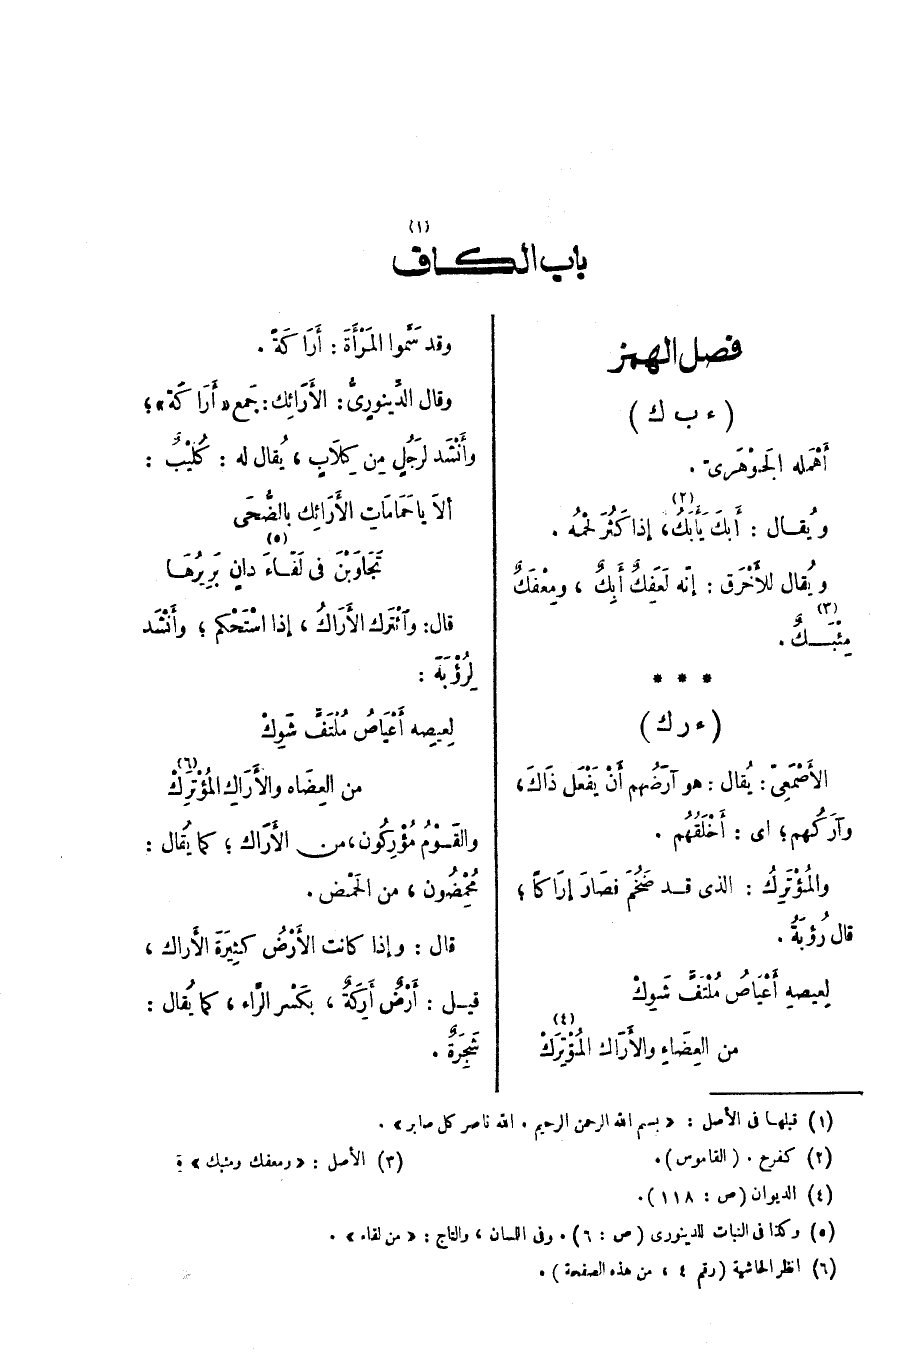 (١)
باب الكاف
فصل الهمز
(ء ب ك)
أَهْمله الجَوْهَرىّ .
(٢)
ويُقال : أَبِكَ يَأْبَكُ، إذا كَثُرَ لَحْمُه .
ويُقال للأَخْرَق : إنّه لَعَفِكٌ أَبِكٌ ، ومِعْفَكٌ
(٣)
مِئْبَكٌ .
* * *
(ء ر ك)
الأَصْمَعِىّ : يُقال : هو آرَضُهم أَنْ يَفْعَل ذَاكَ،
وآرَكُهم؛ اى : أَخْلَقُهُم .
والمُؤْتَرِكُ : الذى قد ضَخُمَ فصَارَ إرَاكًا ؛
قال رُؤبَةُ .
لِعِيصِهِ أَعْيَاصُ مُلْتَفٍّ شَوِكْ
(٤)
من العِضَاءِ والأَرَاك المُؤْتَرِكْ
وقد سَمَّوا المَرْأَةَ : أَرَاكَةً .
وقال الدَّينورىُّ : الأَرَائِك : جَمع «أَرَاكَة»؛
وأَنْشَد لرَجُلٍ مِن كِلَابٍ ، يُقال له : كُلَيْبٌ :
ألاَ يا حَمَامَاتِ الأَرَائِك بالضُّحَى
(٥)
تَجَاوَبْنَ فى لَفَّاءَ دانٍ بَرِيرُهَا
قال: وٱئتَرك الأَرَاكُ ، إذا اسْتَحْكم ؛ وأَنْشَد
لِرُؤْبَةَ :
لِعِيصِه أَعْيَاصُ مُلْتَفٍّ شَوِكْ
(٦)
من العِضَاه والأَرَاكِ المُؤْتَرِكْ
والقَوْمُ مُؤْرِكُون ، من الأَرَاك ؛ كما يُقال :
مُحْمِضُون ، من الحَمْض .
قال : وإذا كانت الأَرْضُ كثِيرَةَ الأَراك ،
قيل : أَرْضٌ أَرِكَةٌ ، بكَسْر الرَّاء ، كما يُقال :
شَجِرَةٌ .
(١) قبلها فى الأصل : « بسم الله الرحمن الرحيم . الله ناصر كل صابر» .
(٢) كفرح . (القاموس). (٣) الأصل : « ومعفك ومئبك »
(٤) الديوان (ص : ١١٨).
(٥) وكذا فى النبات للدينورى (ص : ٦). وفى اللسان ، والتاج : « من لفاء» .
(٦) انظر الحاشية (رقم ٤ ، من هذه الصفحة) .